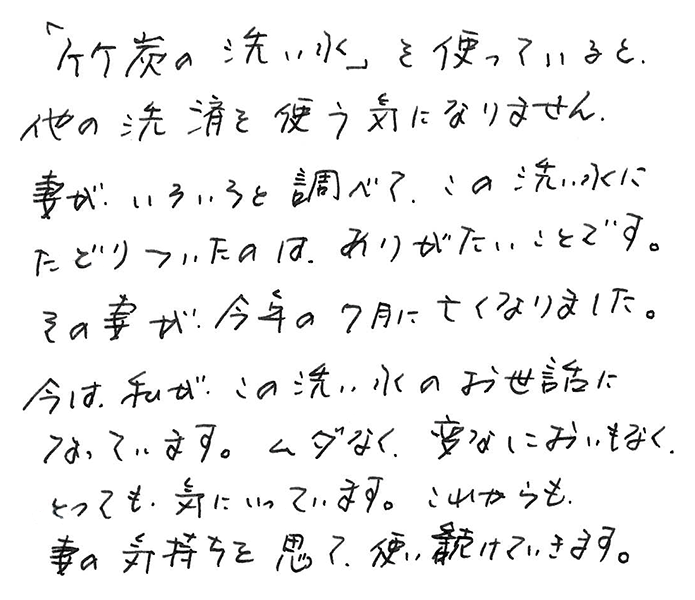 「竹炭の洗い水」を使っていると、
他の洗済を使う気になりません。
妻が、いろいろと調べて、この洗い水に
たどりついたのは、ありがたいことです。
その妻が、今年の7月に亡くなりました。
今は、私が、この洗い水のお世話に
なっています。ムダなく、変なにおいもなく、
とっても、気にいっています。これからも、
妻の気持ちを思て、使い続けていきます。